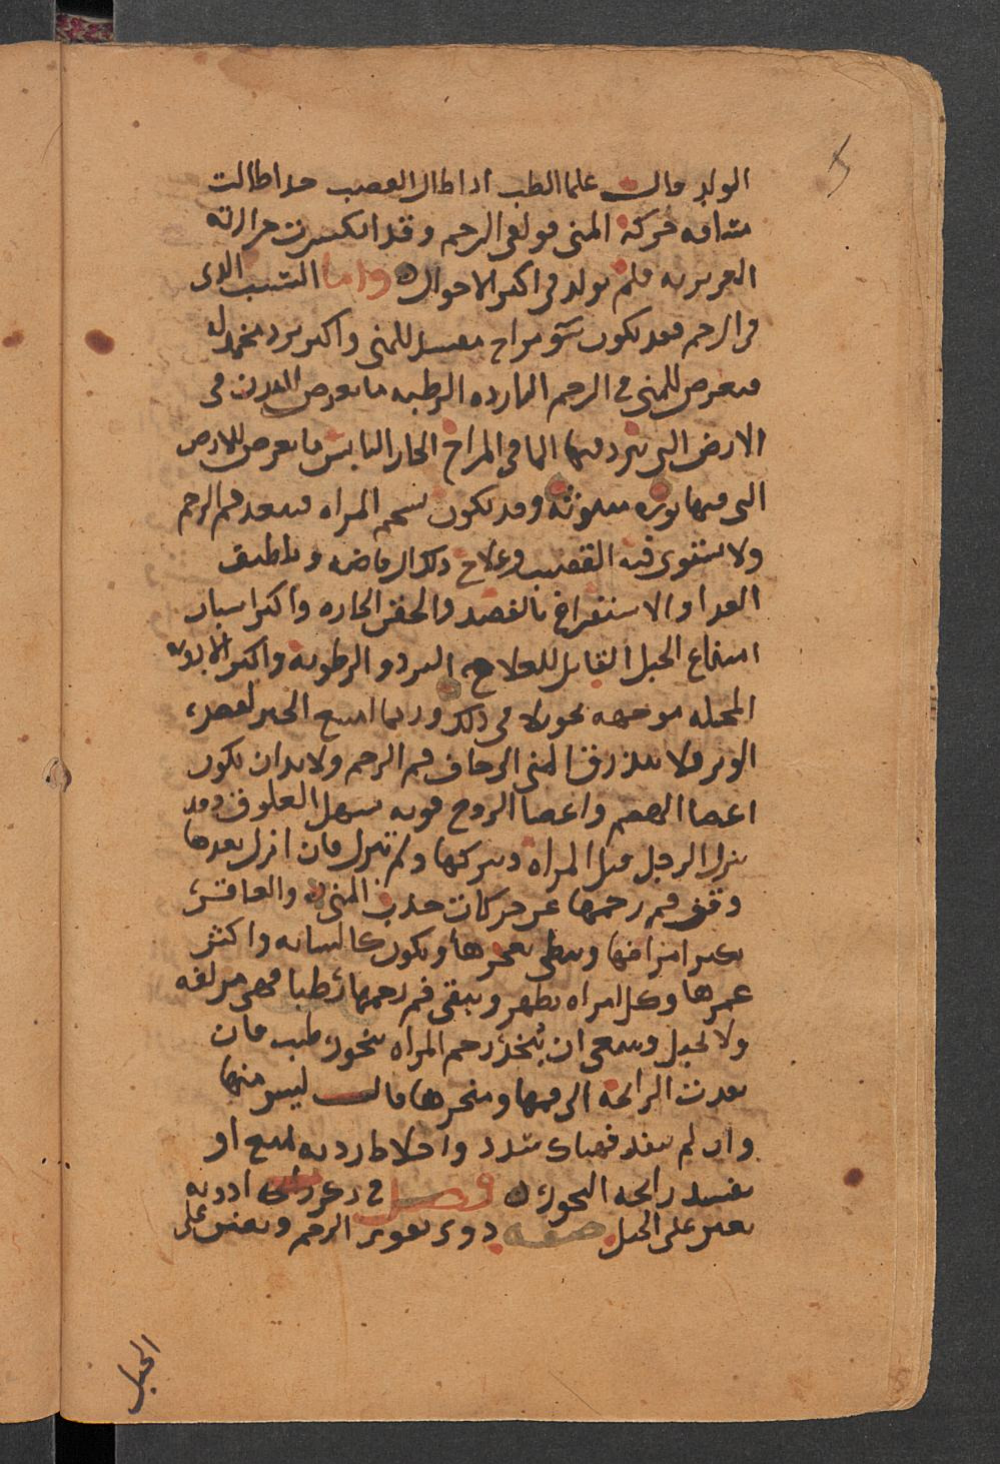 الولد قالت علما الطب اذا طال القضيب جدا طالت
مسافه حركة المنى فوافى الرحم وقد انكسرت حرارته
الغريزيه فلم يولد فى اكثر الاحوال واما السبب الذى
فى الرحم فقد يكون سو مزاج مفسد للمنى واكثره برد مجمد له
فيعرض للمنى فى الرحم البارده الرطبه ما يعرض للبذر فى
الارض التى ينز فيها الما وفى المزاج الحار اليابس ما يعرض للارض
التى فيها نوره مبثوثة وقد يكون شحم المراه فيسد فم الرحم
ولا يستوى فيه القضيب وعلاج ذلك الرياضه وتلطيف
الغدا والاستفراغ بالفصد والحقن الحاره واكثر اسباب
امتناع الحبل القابل للعلاج البرد والرطوبه واكثر الادويه
المحبله موجهه نحو تلافى ذلك وربما امتنع الحبل لقصر
الوتر فلا ينزرق المنى الى حاق فم الرحم ولا بد ان يكون
اعضا الهضم واعضا الروح قويه يسهل العلوق وقد
ينزل الرجل قبل المراه ويتركها ولم تنزل فان انزل بعدها
وقف فم رحمها عن حركات جذب المنى والعاقر
يكثر امراضها ويبطى بحرها ويكون كالشابه واكثر
عمرها وكل امراه تطهر ويبقى فم رحمها رطبا فهى مزلقه
ولا تحبل وينبغى ان يبخر رحم المراه ببخور طيب فان
نفدت الرائحه الى فمها ومنخرها فالسبب ليس منها
وان لم ينفد فهناك سدد واخلاط رديه تمنع او
تفسد رائحه البخور فصل فى ذكر ادويه
تعين على الحبل صفه دوى يقوى الرحم ويعين على
الحبل